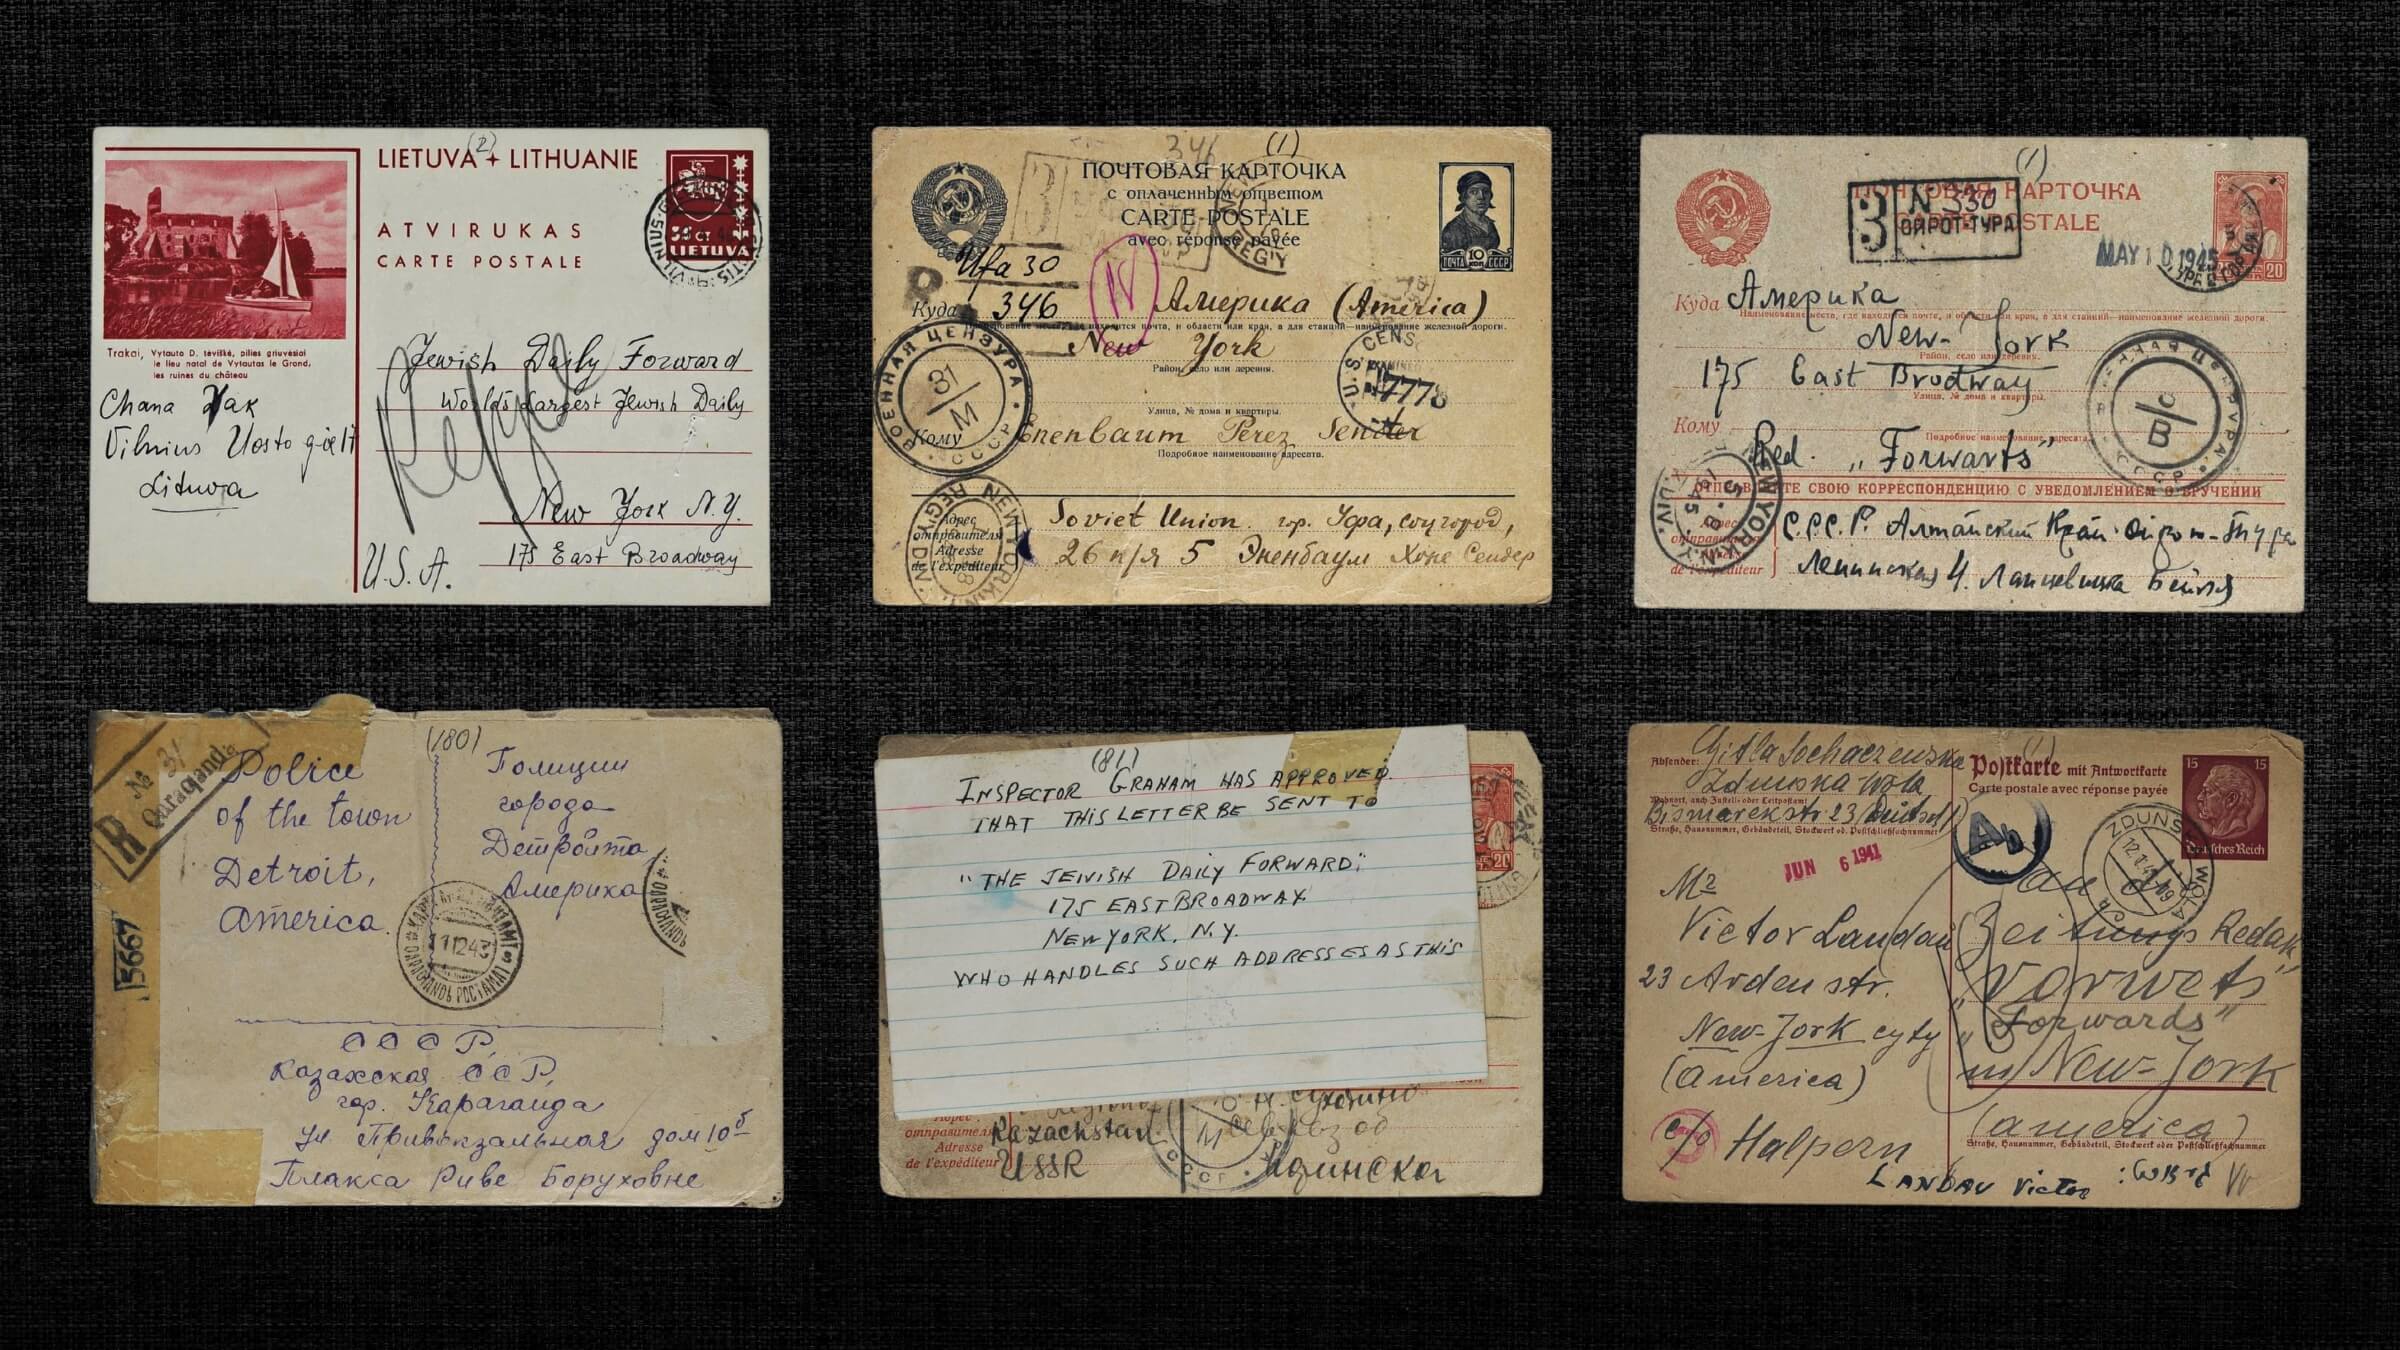 (2)
LIETUVA + LITHUANIE
ATVIRUKAS
CARTE POSTALE
35 CT
LIETUVA
VILNIUS
Trakai, Vytauto D. tėviškė, pilies griuvėsiai
le lieu natal de Vytautas le Grand,
les ruines du château
Chana Zak
Vilnius Uosto g-vė 17
Lituva
Jewish Daily Forward
World's Largest Jewish Daily
New York N.Y.
U.S.A. 175 East Broadway
346 (1)
ПОЧТОВАЯ КАРТОЧКА
с оплаченным ответом
CARTE POSTALE
avec réponse payée
ПОЧТА 10 КОП. СССР
Ufa 30
346
Куда Америка (America)
Наименование места, где находится почта, и области или края, а для станций—наименование железной дороги.
New York
Район, село или деревня.
ВОЕННАЯ ЦЕНЗУРА
31/М
СССР
U.S. CENS
EXAMINED
7778
Улица, № дома и квартиры.
Кому Enenbaum Perez Sender
Подробное наименование адресата.
NEW YORK, N.Y. REG'Y DIV.
Адрес
отправителя
Adresse
de l'expéditeur
Soviet Union гор. Уфа, соцгород,
26 п/я 5 Эненбаум Хоне Сендер
(1)
ПОЧТОВАЯ КАРТОЧКА
CARTE POSTALE
З N 330
ОЙРОТ-ТУРА
MAY 10 1945
20
Куда Америка
Наименование места, где находится почта, и области или края, а для станций—наименование железной дороги.
New-York
Район, село или деревня.
175 East Brodway
Улица, № дома и квартиры.
Кому
Подробное наименование адресата.
Red. „Forwarts"
ОТПРАВЛЯЙТЕ СВОЮ КОРРЕСПОНДЕНЦИЮ С УВЕДОМЛЕНИЕМ О ВРУЧЕНИИ
NEW YORK, N.Y.
1945
de l'expéditeur
С.С.С.Р. Алтайский Край Ойрот-Тура
Ленинская 4. Бейля
(180)
R № 31
Qaraqandь
15667
Police
of the town
Detroit,
America.
Полиции
города
Детройта
Америка
11 12 43
QARAGANDЬ POCTAMAT
СССР,
Казахская ССР,
гор. Караганда
ул Привокзальная дом 10б
Плакса Риве Боруховне
(81)
INSPECTOR GRAHAM HAS APPROVED
THAT THIS LETTER BE SENT TO
"THE JEWISH DAILY FORWARD"
175 EAST BROADWAY
NEW YORK, N.Y.
WHO HANDLES SUCH ADDRESSES AS THIS
20
отправителя
Adresse
de l'expéditeur
Kazachstan
USSR
СССР
(1)
Absender: Gitla Sochaczewska
Zdunska-Wola
Wohnort, auch Zustell- oder Leitpostamt
Bismarckstr 23
Straße, Hausnummer, Gebäudeteil, Stockwerk od. Postschließfachnummer
Postkarte mit Antwortkarte
Carte postale avec réponse payée
15 15
Deutsches Reich
Ab
ZDUNSKA WOLA
JUN 6 1941
Mr
Victor Landau
23 Arden str.
New-York cyty
(America)
c/o Halpern
an die
Zeitungs Redakt
„Vorwets"
„Forwards"
in New-York
(America)
Straße, Hausnummer, Gebäudeteil, Stockwerk oder Postschließfachnummer
LANDAU Victor